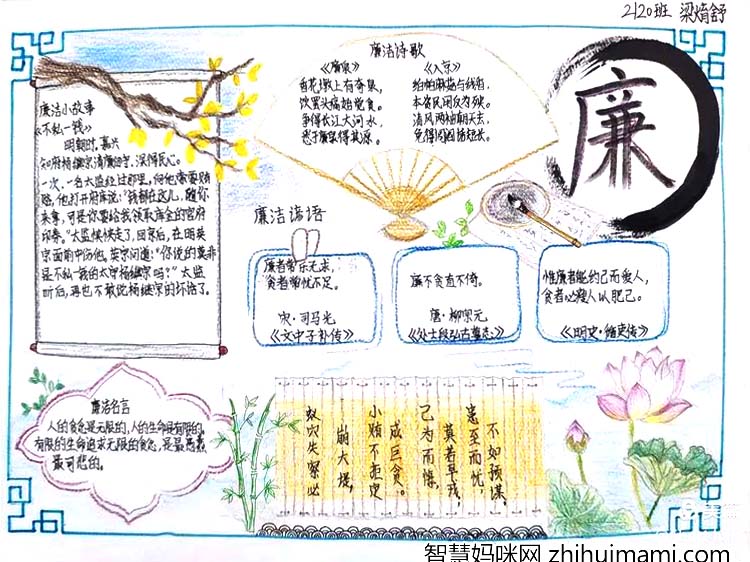 2120班 梁焴舒
廉洁诗歌
《廉泉》
《入京》
争得长江大河水，
清风两袖朝天去，
廉
廉洁小故事
《不私一钱》
明朝时，嘉兴
知府杨继宗清廉自守，深得民心。
一次，一名太监经过那里，向他索要贿
赂，他打开府库说："钱都在这儿，随你
来拿，可是你要给我领取库金的官府
印券。"太监怏怏走了，回京后，在明英
宗面前中伤他。英宗问道："你说的莫非
是不私一钱的太守杨继宗吗？"太监
听后，再也不敢说杨继宗的坏话了。
廉洁谚语
廉者常乐无求，
贪者常忧不足。
宋·司马光
《文中子补传》
廉不贪直不倚。
唐·柳宗元
惟廉者能约己而爱人，
贪者必瘦人以肥己。
《明史·循吏传》
廉洁名言
人的贪念是无限的，人的生命是有限的，
有限的生命追求无限的贪念，是最愚蠢
最可悲的。
不如预谋，
患至而忧，
莫若早戒，
己为而悔，
成巨贪。
小贿不拒定
崩大堤，
蚁穴失察必
智慧妈咪网 zhihuimami.com